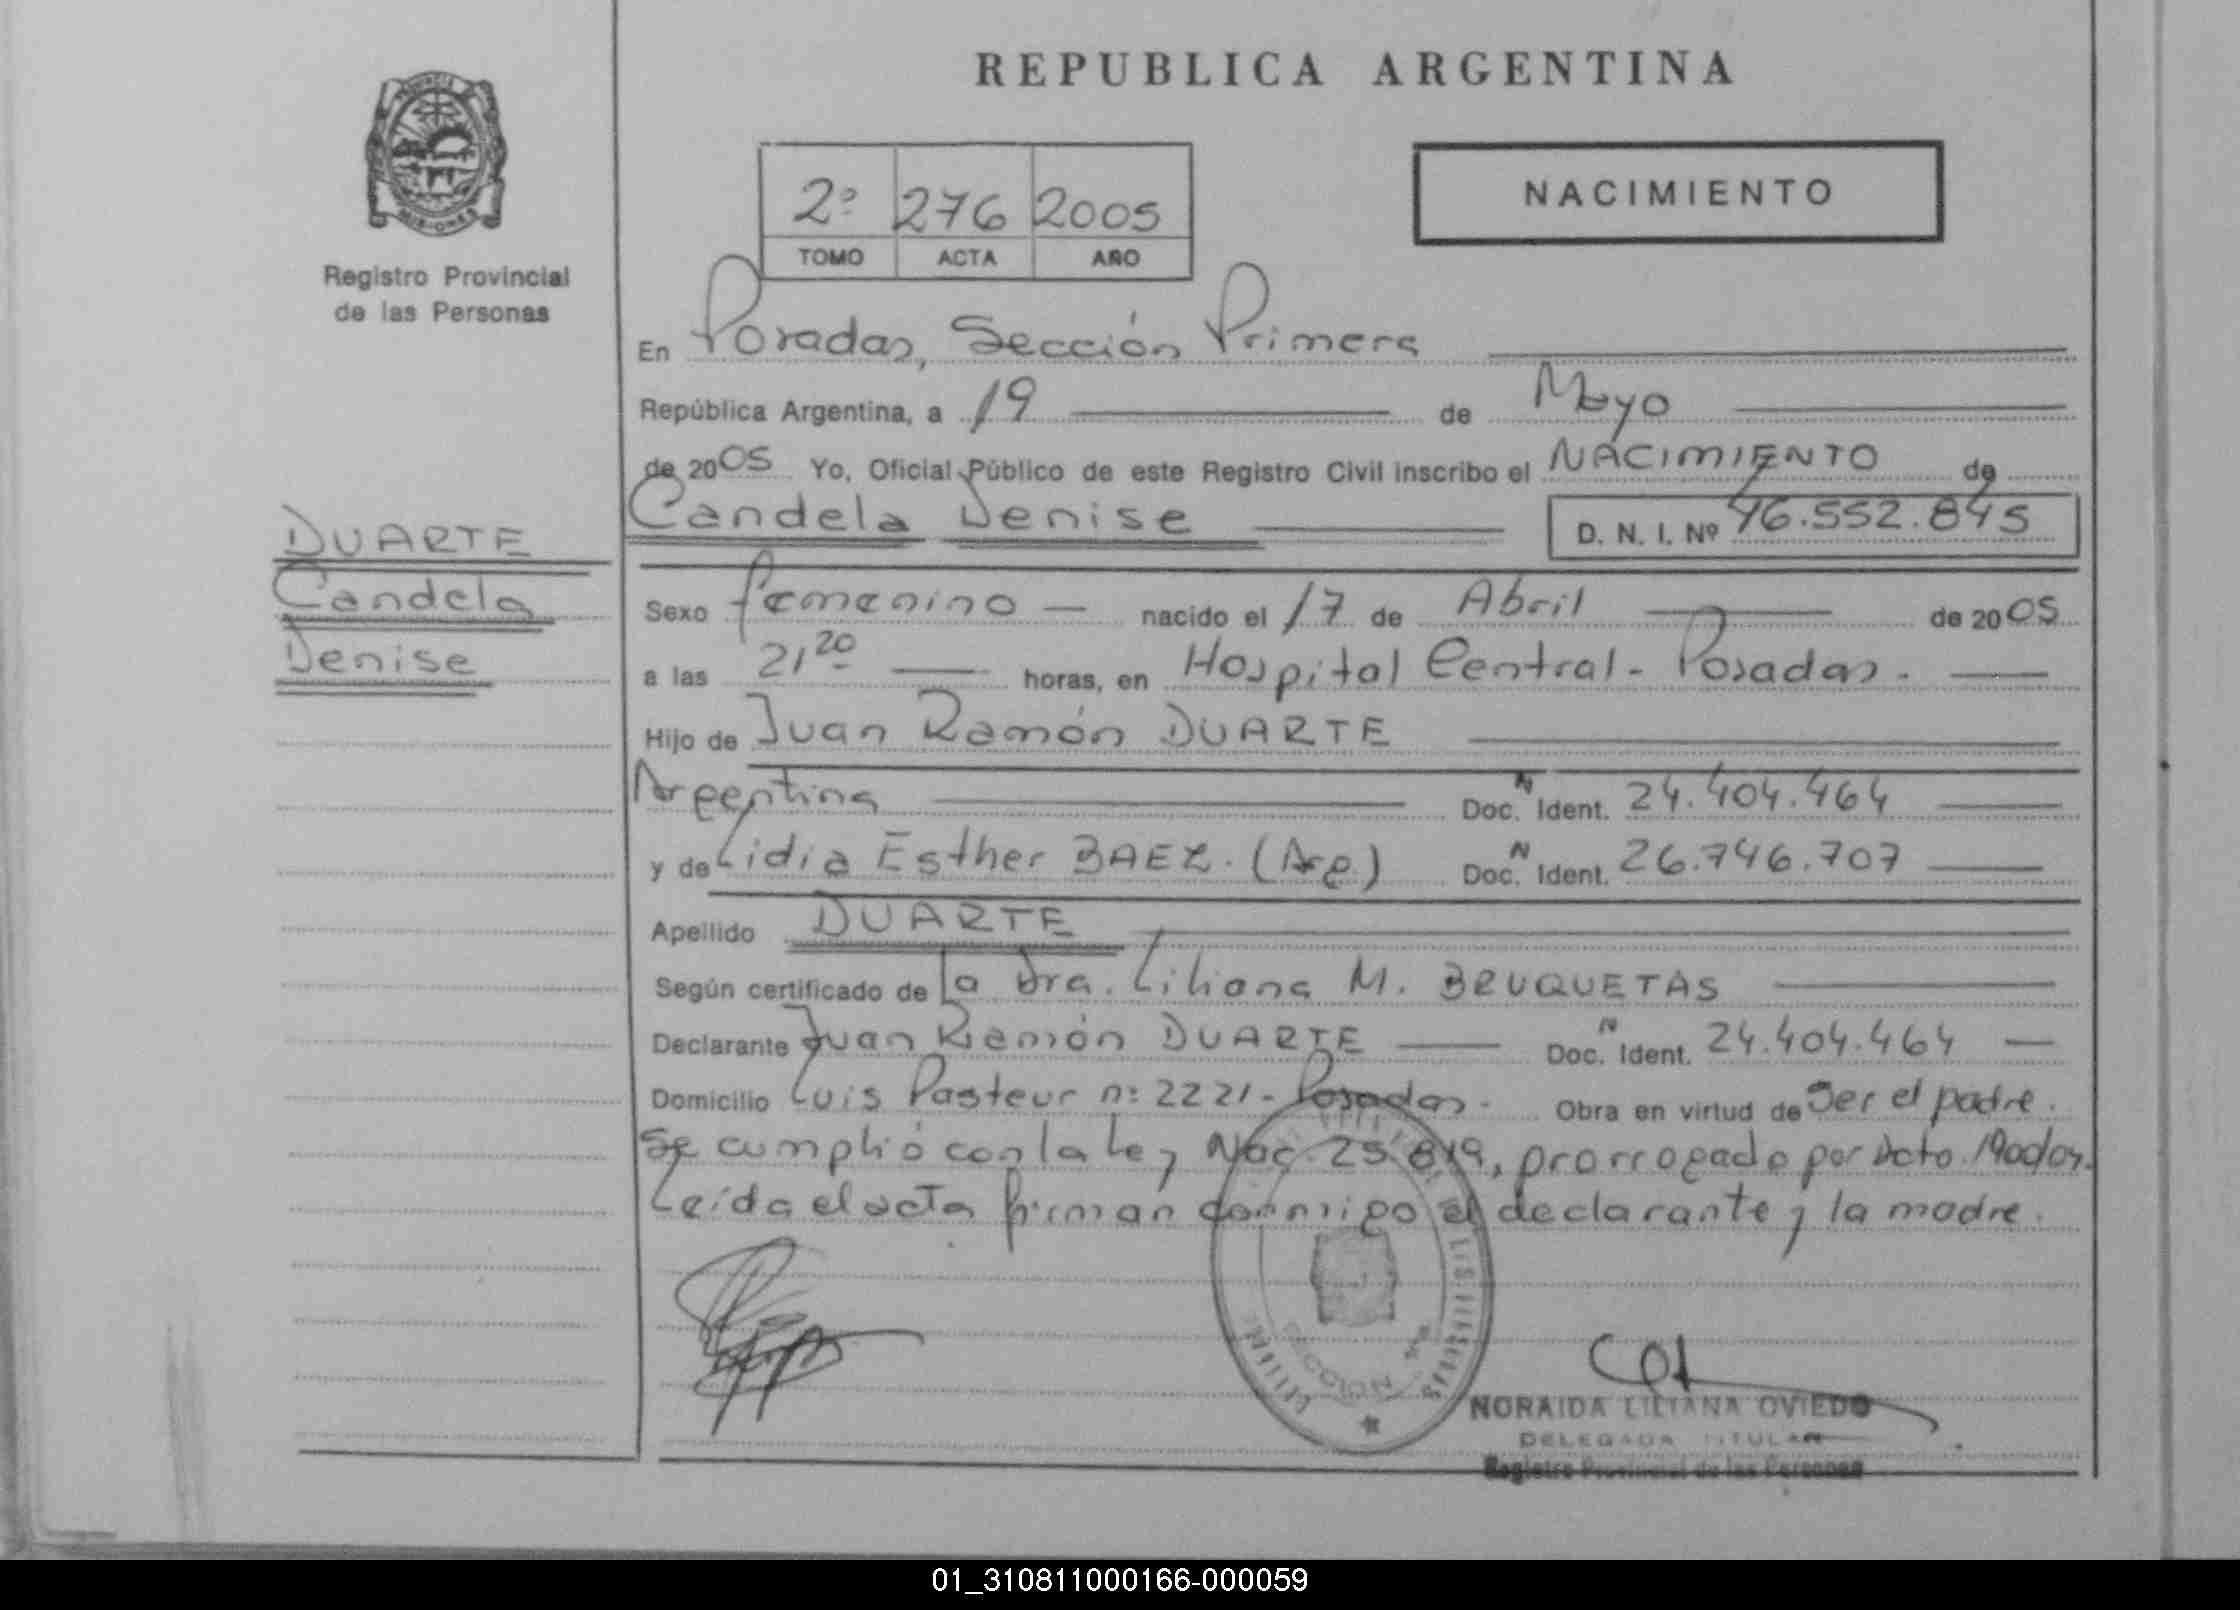 REPUBLICA ARGENTINA
NACIMIENTO
2º 276 2005
TOMO ACTA AÑO
Registro Provincial
de las Personas
En Posadas, Sección Primera
República Argentina, a 19 de Mayo
de 2005 Yo, Oficial Público de este Registro Civil inscribo el NACIMIENTO de
Candela Denise D. N. I. Nº 46.552.845
DUARTE
Candela
Denise
Sexo femenino nacido el 17 de Abril de 2005
a las 21 20 horas, en Hospital Central - Posadas.
Hijo de Juan Ramón DUARTE
Argentina Doc. N Ident. 24.404.464
y de Lidia Esther BAEZ. (Arg.) Doc. N Ident. 26.746.707
Apellido DUARTE
Según certificado de la Dra. Liliana M. BRUQUETAS
Declarante Juan Ramón DUARTE Doc. N Ident. 24.404.464
Domicilio Luis Pasteur nº 2221 - Posadas. Obra en virtud de Ser el padre.
Se cumplió con la Ley Nac. 25.819, prorrogado por Dcto.
Leída el acta firman conmigo el declarante y la madre.
SECCION
NORAIDA LILIANA OVIEDO
DELEGADA TITULAR
Registro Provincial de las Personas
01_310811000166-000059